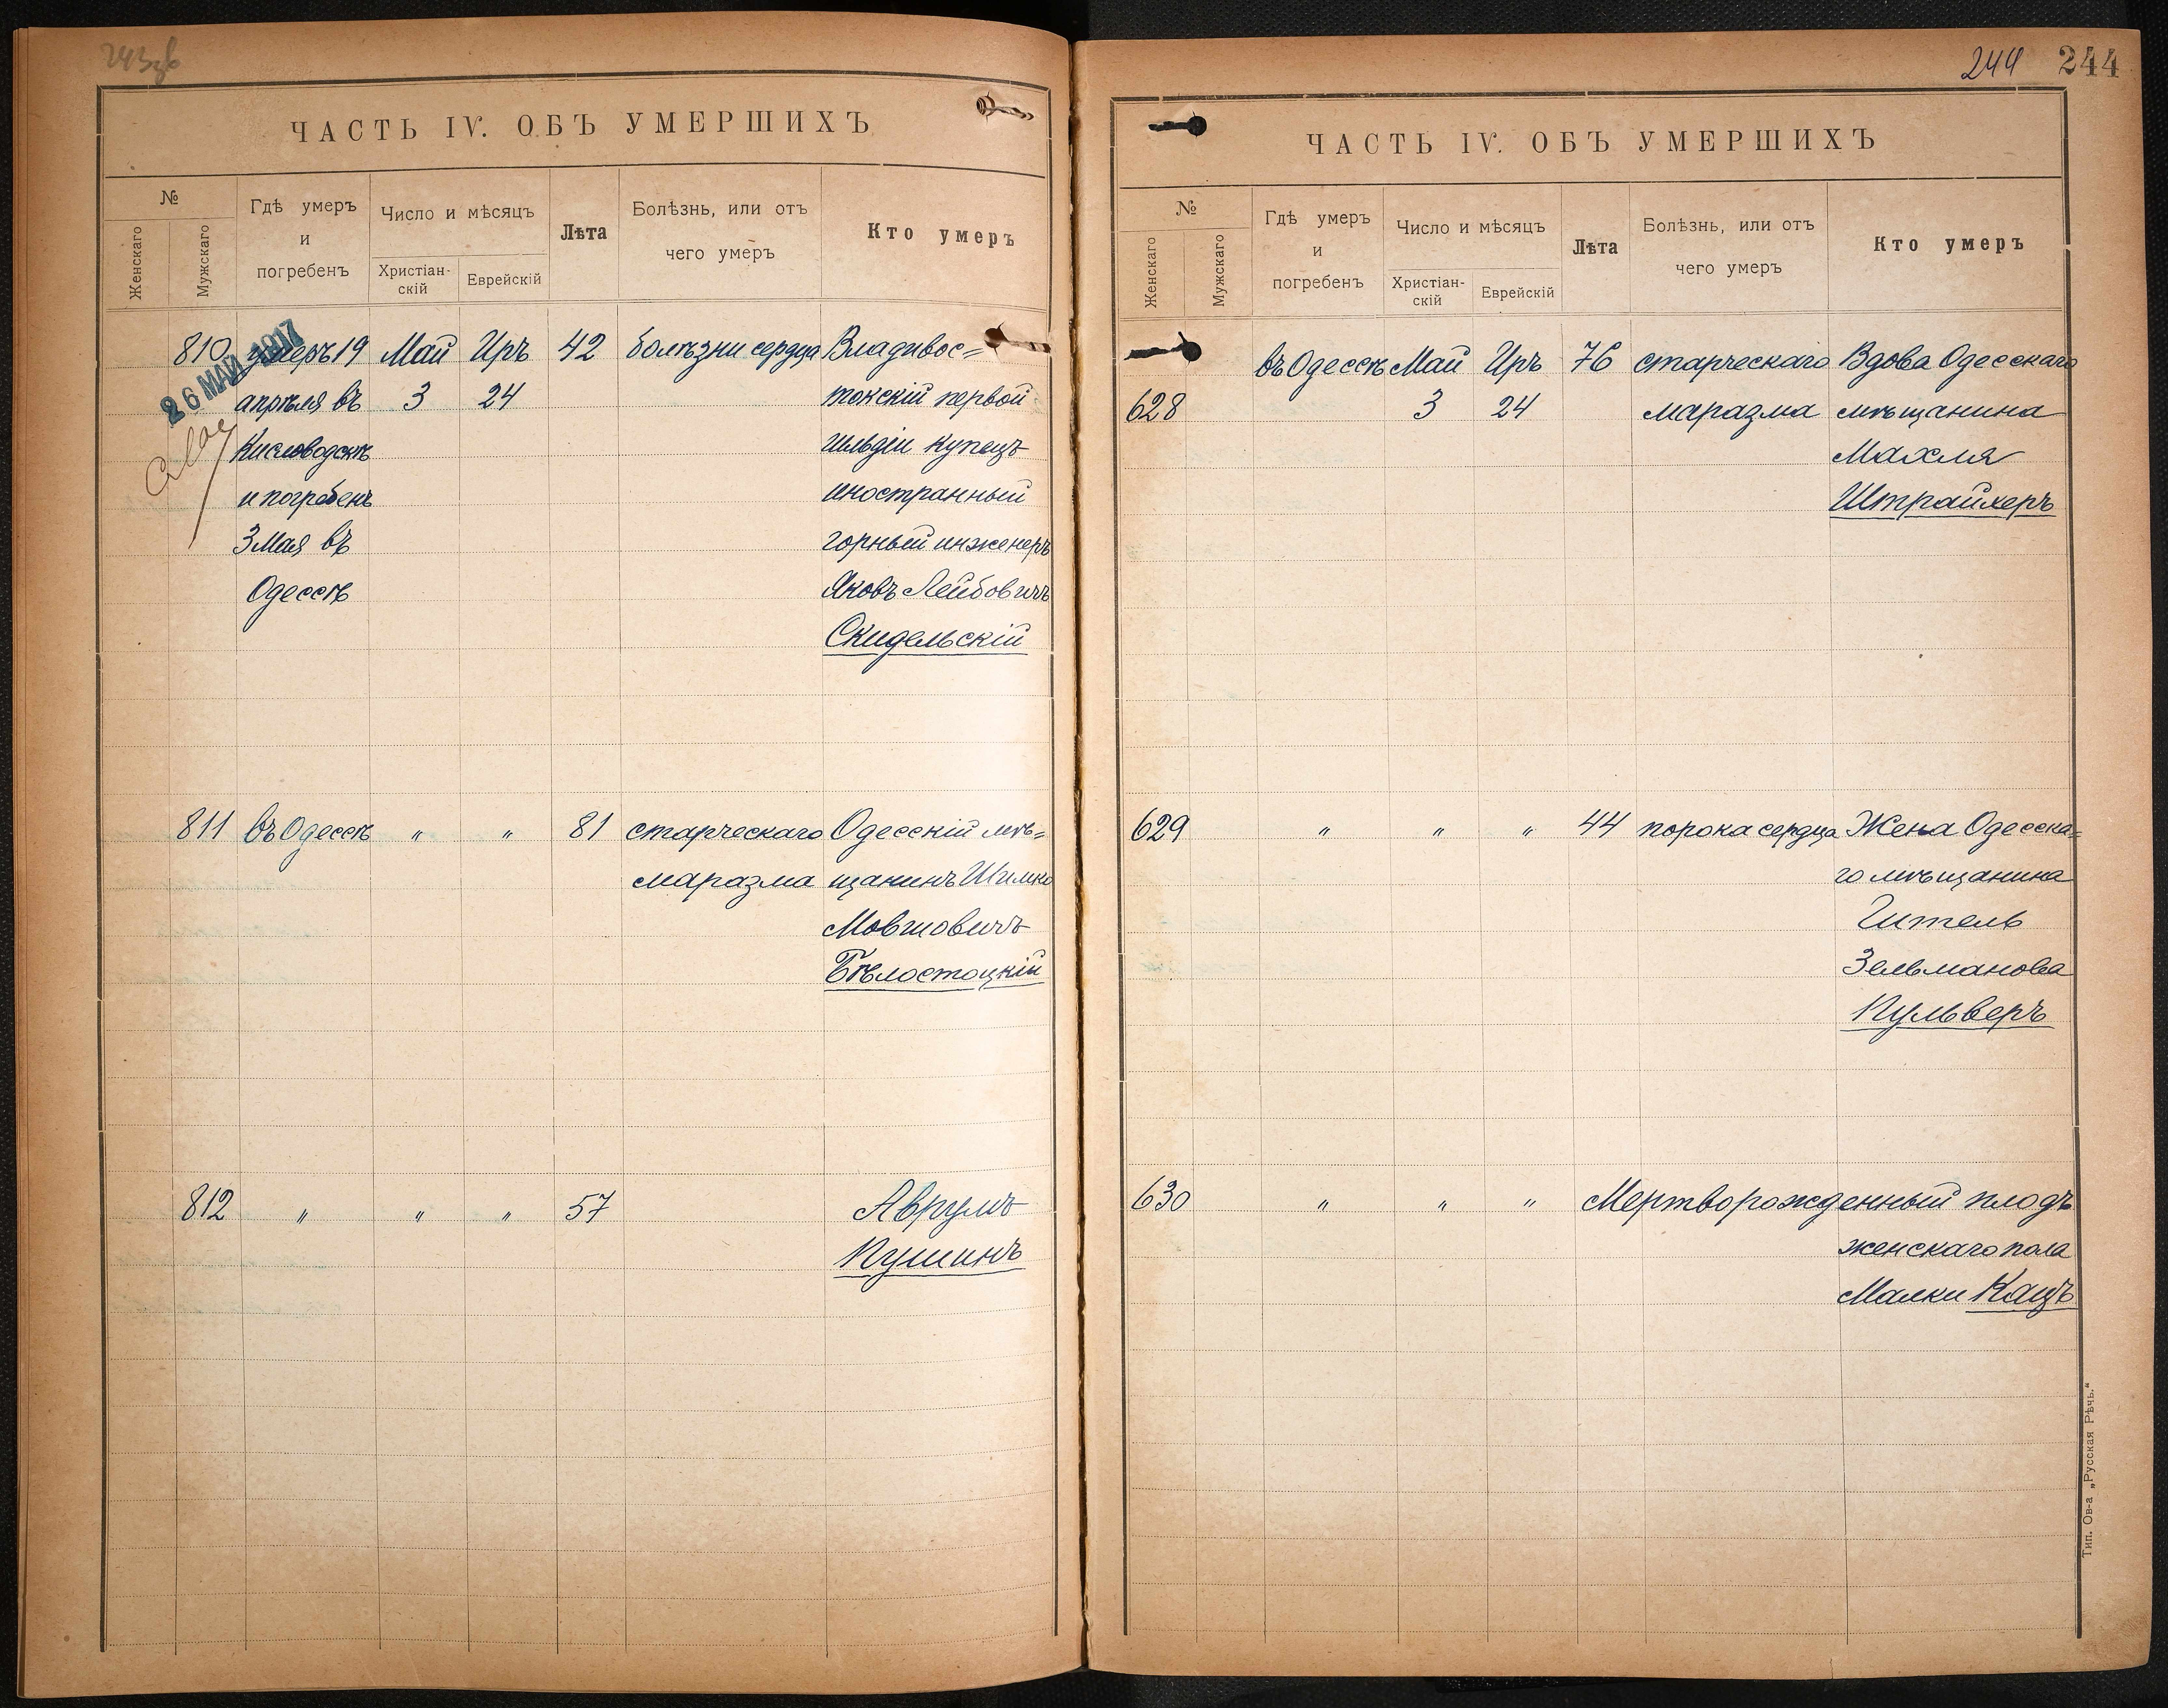 243об
ЧАСТЬ IV. ОБЪ УМЕРШИХЪ
№
Женскаго
Мужскаго
Гдѣ умеръ
и
погребенъ
Число и мѣсяцъ
Христіан-
скій
Еврейскій
Лѣта
Болѣзнь, или отъ
чего умеръ
Кто умеръ
26 МАЙ 1917
810 умеръ 19 Май Иръ 42 болѣзни сердца Владивос=
апрѣля въ 3 24 токскій первой
Кисловодскѣ гильдіи купецъ
и погребенъ иностранный
3 Мая въ горный инженеръ
Одессѣ Яковъ Лейбовичъ
Скидельскій
811 въ Одессѣ " " 81 старческаго Одесскій мѣ=
маразма щанинъ Шимко
Мовшовичъ
Бѣлостоцкій
812 " " " 57 Аврумъ
Кушинъ
244 244
ЧАСТЬ IV. ОБЪ УМЕРШИХЪ
№
Женскаго
Мужскаго
Гдѣ умеръ
и
погребенъ
Число и мѣсяцъ
Христіан-
скій
Еврейскій
Лѣта
Болѣзнь, или отъ
чего умеръ
Кто умеръ
въ Одессѣ Май Иръ 76 старческаго Вдова Одесскаго
628 3 24 маразма мѣщанина
Махля
Штрайхеръ
629 " " " 44 порока сердца Жена Одесска=
го мѣщанина
Гитель
Зельманова
Кульверъ
630 " " " Мертворожденный плодъ
женскаго пола
Малки Кацъ
Тип. Ов-а „Русская Рѣчь.“